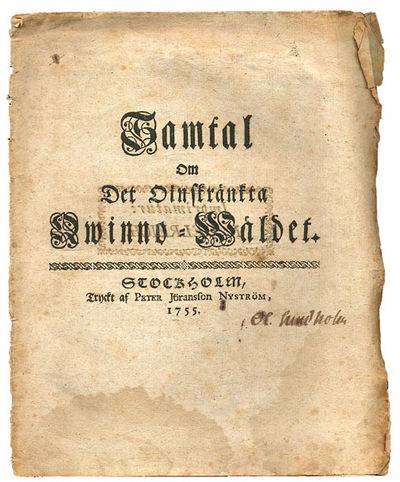 Samtal
Om
Det Oinskränkta
Qwinno-Wäldet.
STOCKHOLM,
Tryckt af PETER Jöransson NYSTRÖM,
1755.